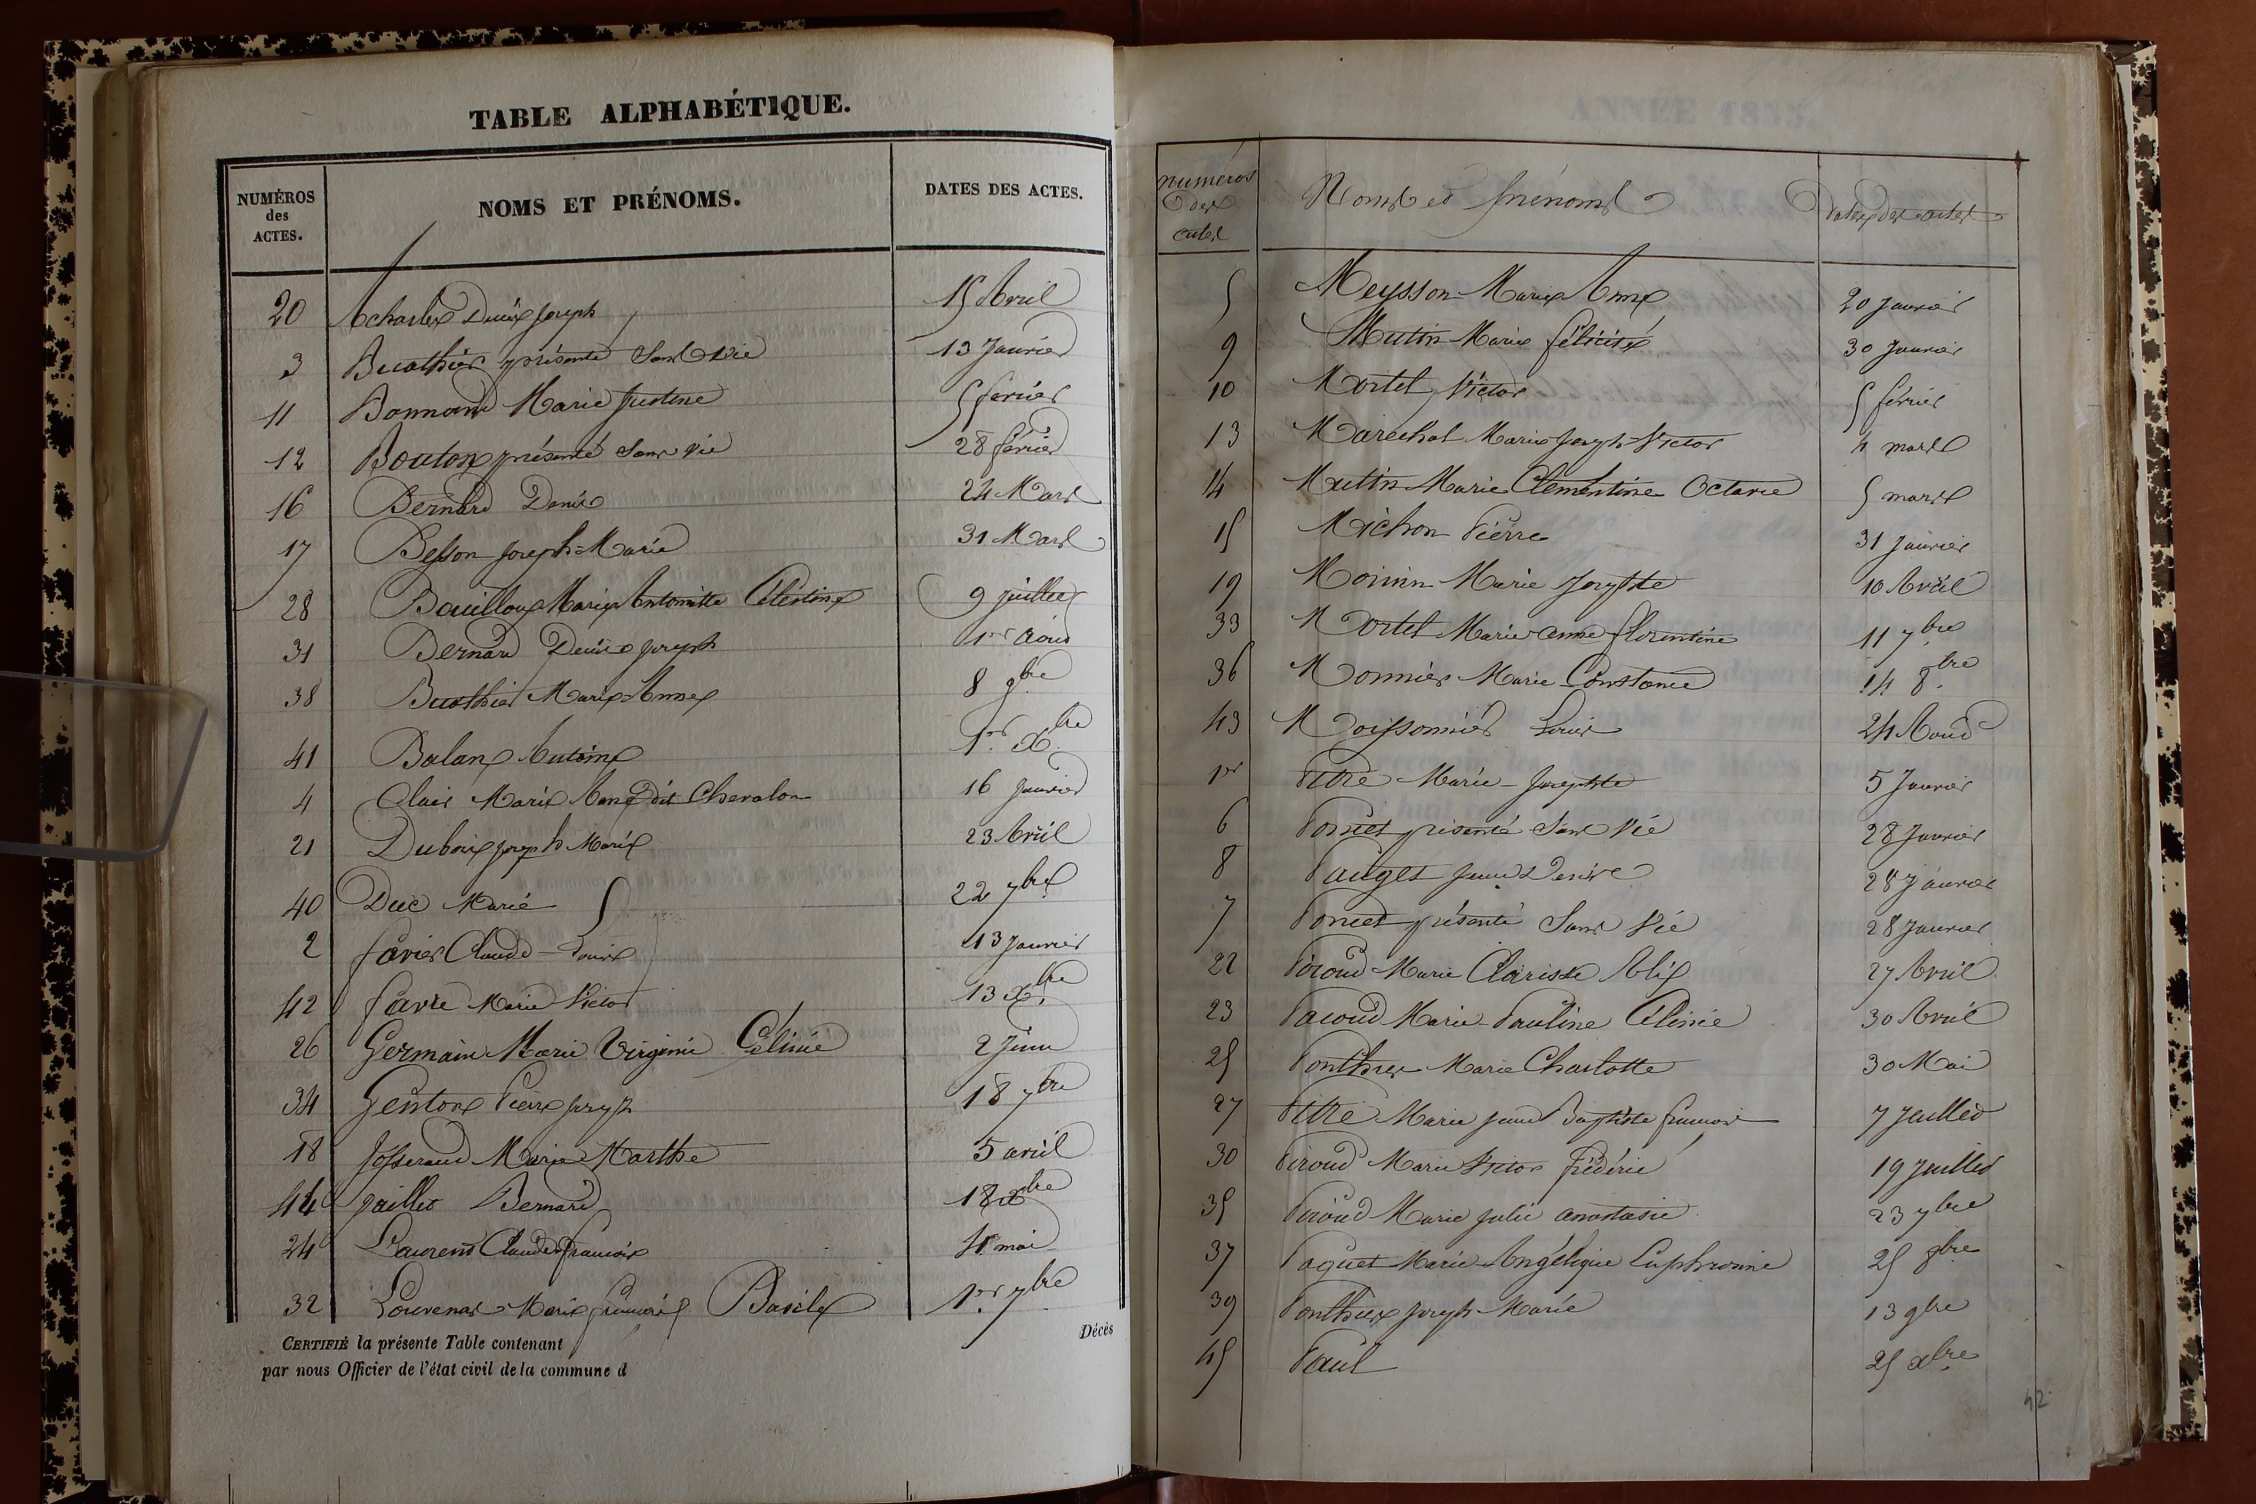 TABLE ALPHABÉTIQUE.
NUMÉROS des ACTES. NOMS ET PRÉNOMS. DATES DES ACTES.
20 Acharles Denis Joseph 15 Avril
3 Buathier présenté Sans Vie 13 Janvier
11 Bonnand Marie Justine 5 février
12 Bouton présenté Sans Vie 28 février
16 Bernard Denis 24 Mars
17 Besson Joseph Marie 31 Mars
28 Bouilloux Marie Antoinette Célestine 9 juillet
31 Bernard Denis Joseph 1er Aoud
38 Buathier Marie Anne 8 9bre
41 Balan Antoine 1er Xbre
4 Clair Marie Anne dit Chevalon 16 Janvier
21 Dubois Joseph Marie 23 Avril
40 Duc Marie 22 9bre
2 favier Claude Louis 13 Janvier
42 favre Marie Victor 13 Xbre
26 Germain Marie Virginie Célinie 2 Juin
34 Genton Pierre Joseph 18 7bre
18 Josserand Marie Marthe 5 avril
44 jaillet Bernard 18 Xbre
24 Laurent Claude françois 4 mai
32 Louvenas Marie françois Basile 1er 7bre
CERTIFIÉ la présente Table contenant Décès
par nous Officier de l'état civil de la commune d
ANNÉE 1855.
numéros des actes Noms et prénoms Dates des actes
5 Meysson Marie Anne 20 janvier
9 Mutin Marie félicité 30 Janvier
10 Mortel Victor 5 février
13 Marechal Marie Joseph Victor 4 mars
14 Mutin Marie Clémentine Octavie 5 mars
15 Michon Pierre 31 Janvier
19 Moinin Marie Josephte 10 Avril
33 Mortel Marie anne florentine 11 7bre
36 Monnier Marie Constance 14 8bre
43 Moissonnier Louis 24 Aoud
1er Pitre Marie Josephte 5 Janvier
6 Poncet présenté Sans Vie 28 Janvier
8 Pauget Jean Desiré 28 Janvier
7 Poncet présenté Sans Vie 28 Janvier
22 Piroud Marie Clarisse Alix 27 Avril
23 Pacoud Marie Pauline Célinie 30 Avril
25 Ponthus Marie Charlotte 30 Mai
27 Pitre Marie Jean Baptiste françois 7 Juillet
30 Piroud Marie Victor frédéric 19 Juillet
35 Piroud Marie Julie anastasie 23 7bre
37 Paquet Marie Angélique Euphrosine 25 8bre
39 Ponthus Joseph Marie 13 9bre
45 Paul 25 xbre
42